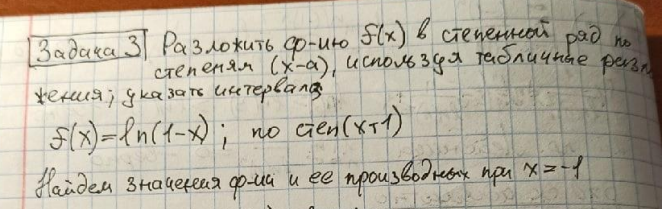 Задача 3 Разложить ф-ию f(x) в степенной ряд по
степеням (x-a), используя табличные разл
жения; указать интервал
f(x)=ln(1-x); по степ(x+1)
Найдем значения ф-ии и ее производных при x=-1